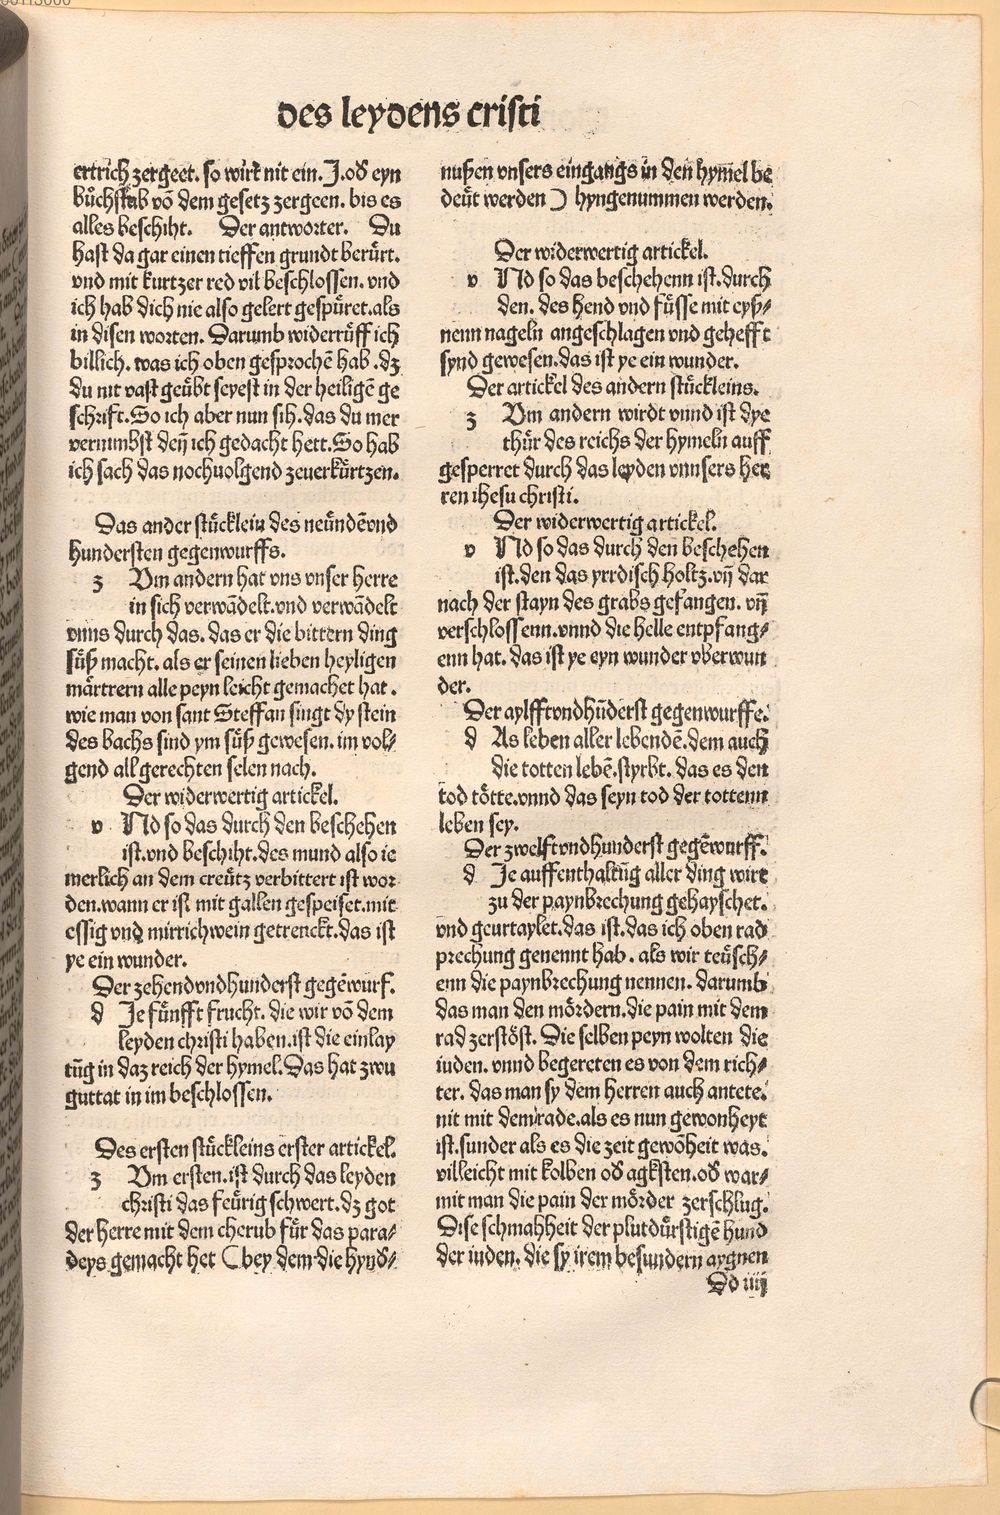 des leydens cristi
ertrich zergeet. so wirt nit ein. J. od eyn
bůchstab võ dem gesetz zergeen. bis es
alles beschiht. Der antworter. Du
hast da gar einen tieffen grundt berürt.
vnd mit kurtzer red vil beschlossen. vnd
ich hab dich nie also gelert gespüret. als
in disen worten. Darumb widerrůff ich
billich. was ich oben gesprochē hab. dz
du nit vast geübt seyest in der heiligē ge
schrift. So ich aber nun sih. das du mer
vernimbst deñ ich gedacht hett. So hab
ich sach das nochuolgend zeuerkürtzen.
Das ander stücklein des neündēvnd
hundersten gegenwurffs.
z Vm andern hat vns vnser herre
in sich verwādelt. vnd verwādelt
vnns durch das. das er die bittern ding
süß macht. als er seinen lieben heyligen
märtrern alle peyn leicht gemachet hat.
wie man von sant Steffan singt dy stein
des bachs sind ym süß gewesen. im vol⸗
gend all gerechten selen nach.
Der widerwertig artickel.
v Nd so das durch den beschehen
ist. vnd beschiht. des mund also ie
merlich an dem creütz verbittert ist wor
den. wann er ist mit gallen gespeiset. mit
essig vnd mirrichwein getrenckt. das ist
ye ein wunder.
Der zehendvndhunderst gegēwurf.
d Je fünfft frucht. die wir võ dem
leyden christi haben. ist die einlay
tūg in daz reich der hymel. Das hat zwu
guttat in im beschlossen.
Des ersten stückleins erster artickel.
z Vm ersten. ist durch das leyden
christi das feürig schwert. dz got
der herre mit dem cherub für das para⸗
deys gemacht het (bey dem die hynd⸗
nußen vnsers eingangs in den hymel be
deüt werden) hyngenummen werden.
Der widerwertig artickel.
v Nd so das beschehenn ist. durch
den. des hend vnd füsse mit eyß⸗
nenn nageln angeschlagen vnd gehefft
synd gewesen. das ist ye ein wunder.
Der artickel des andern stückleins.
z Vm andern wirdt vnnd ist dye
thür des reichs der hymeln auff
gesperret durch das leyden vnnsers her
ren ihesu christi.
Der widerwertig artickel.
v Nd so das durch den beschehen
ist. den das yrrdisch holtz. vñ dar
nach der stayn des grabs gefangen. vñ
verschlossenn. vnnd die helle entpfang⸗
enn hat. das ist ye eyn wunder vberwun
der.
Der aylfftvndhūderst gegenwurffe.
d As leben aller lebendē. dem auch
die totten lebē. styrbt. das es den
tod tötte. vnnd das seyn tod der tottenn
leben sey.
Der zwelftvndhunderst gegēwurff.
d Je auffenthaltūg aller ding wirt
zu der paynbrechung gehayschet.
vnd geurtaylet. das ist. das ich oben rad
prechung genennt hab. als wir teüsch⸗
enn die paynbrechung nennen. darumb
das man den mördern. die pain mit dem
rad zerstöst. Die selben peyn wolten die
iuden. vnnd begereten es von dem rich⸗
ter. das man sy dem herren auch antete.
nit mit dem rade. als es nun gewonheyt
ist. sunder als es die zeit gewõheit was.
villeicht mit kolben od agksten. od war⸗
mit man die pain der mörder zerschlug.
Dise schmahheit der plutdürstigē hund
der iuden. die sy irem besundern aygnen
Dd iiij